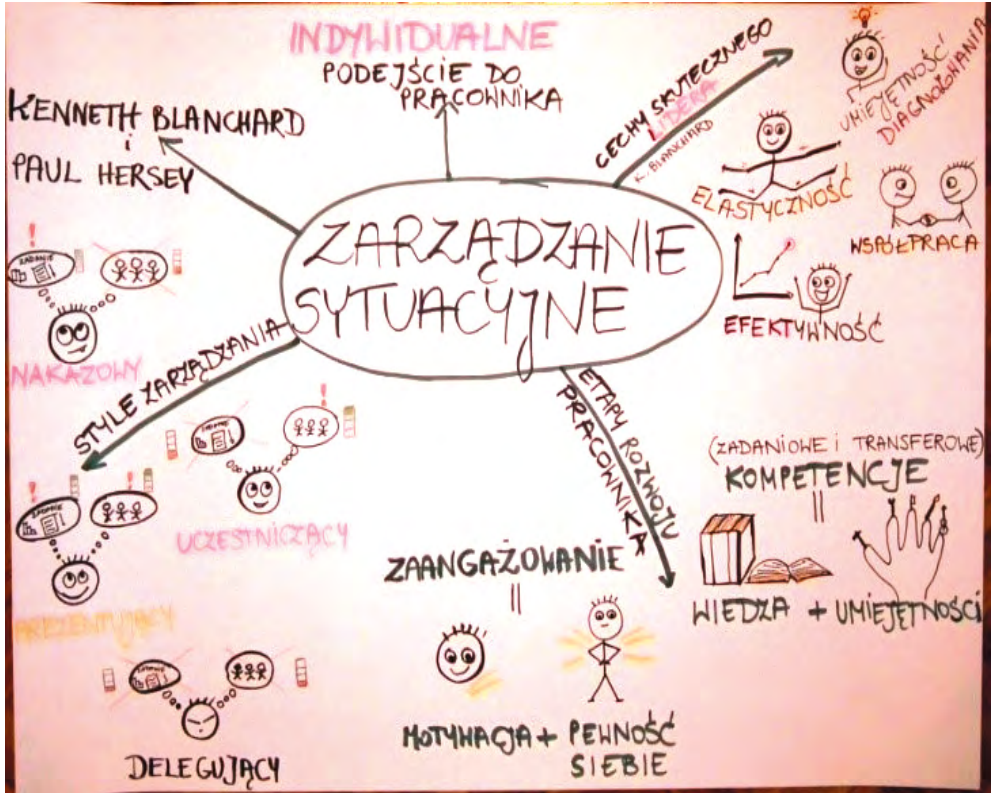 INDYWIDUALNE
PODEJŚCIE DO
PRACOWNIKA
KENNETH BLANCHARD
i
PAUL HERSEY
CECHY SKUTECZNEGO
LIDERA
K. BLANCHARD
UMIEJĘTNOŚĆ
DIAGNOZOWANIA
ELASTYCZNOŚĆ
WSPÓŁPRACA
EFEKTYWNOŚĆ
ZARZĄDZANIE
SYTUACYJNE
STYLE ZARZĄDZANIA
ZADANIE
NAKAZOWY
UCZESTNICZĄCY
PREZENTUJĄCY
DELEGUJĄCY
ETAPY ROZWOJU
PRACOWNIKA
ZAANGAŻOWANIE
=
MOTYWACJA + PEWNOŚĆ
SIEBIE
(ZADANIOWE i TRANSFEROWE)
KOMPETENCJE
=
WIEDZA + UMIEJĘTNOŚCI